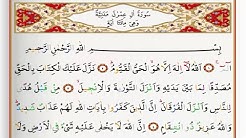 سُورَةُ آلِ عِمْرٰنَ مَدَنِيَّةٌ
وَهِيَ مِائَتَا آيَةٍ
بِسْمِ اللّٰهِ الرَّحْمٰنِ الرَّحِيمِ
الٓمٓ ۝ اَللّٰهُ لَٓا اِلٰهَ اِلَّا هُوَ الْحَيُّ الْقَيُّومُ ۝ نَزَّلَ عَلَيْكَ الْكِتَابَ بِالْحَقِّ
مُصَدِّقًا لِمَا بَيْنَ يَدَيْهِ وَاَنْزَلَ التَّوْرٰيةَ وَالْاِنْجِيلَ ۝ مِنْ قَبْلُ هُدًى
لِلنَّاسِ وَاَنْزَلَ الْفُرْقَانَ اِنَّ الَّذِينَ كَفَرُوا بِاٰيَاتِ اللّٰهِ لَهُمْ عَذَابٌ شَدِيدٌ
وَاللّٰهُ عَزِيزٌ ذُو انْتِقَامٍ ۝ اِنَّ اللّٰهَ لَا يَخْفٰى عَلَيْهِ شَيْءٌ فِي الْاَرْضِ